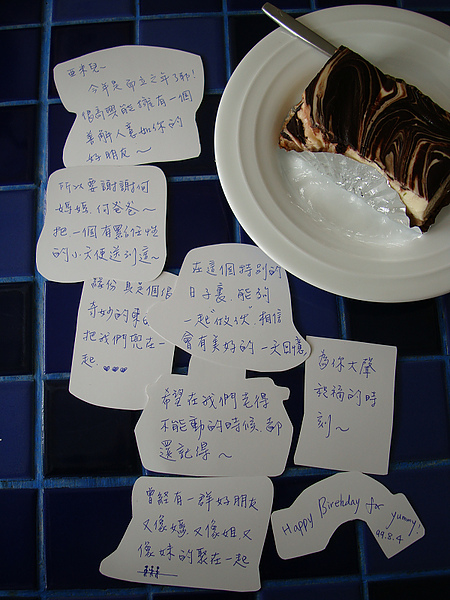 亞米兒~
今年是而立之年了耶!
很高興能擁有一個
善解人意如你的
好朋友~
所以要謝謝何
媽媽.何爸爸~
把一個有點任性
的小天使送到這~
緣份真是個很
奇妙的東西
把我們兜在一
起
在這個特別的
日子裏.能夠
一起"做伙".相信
會有美好的一天回憶
希望在我們老得
不能動的時候.都
還記得~
為你大聲
祝福的時
刻~
曾經有一群好朋友
又像媽.又像姐.又
像妹的聚在一起
Happy Birthday for yummy!
99.8.4